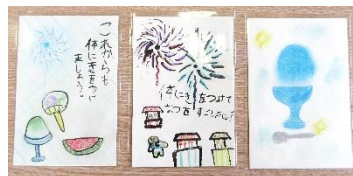 これからも
体に気をつけ
ましょう!
体にきをつけて
なつをすごしたい!